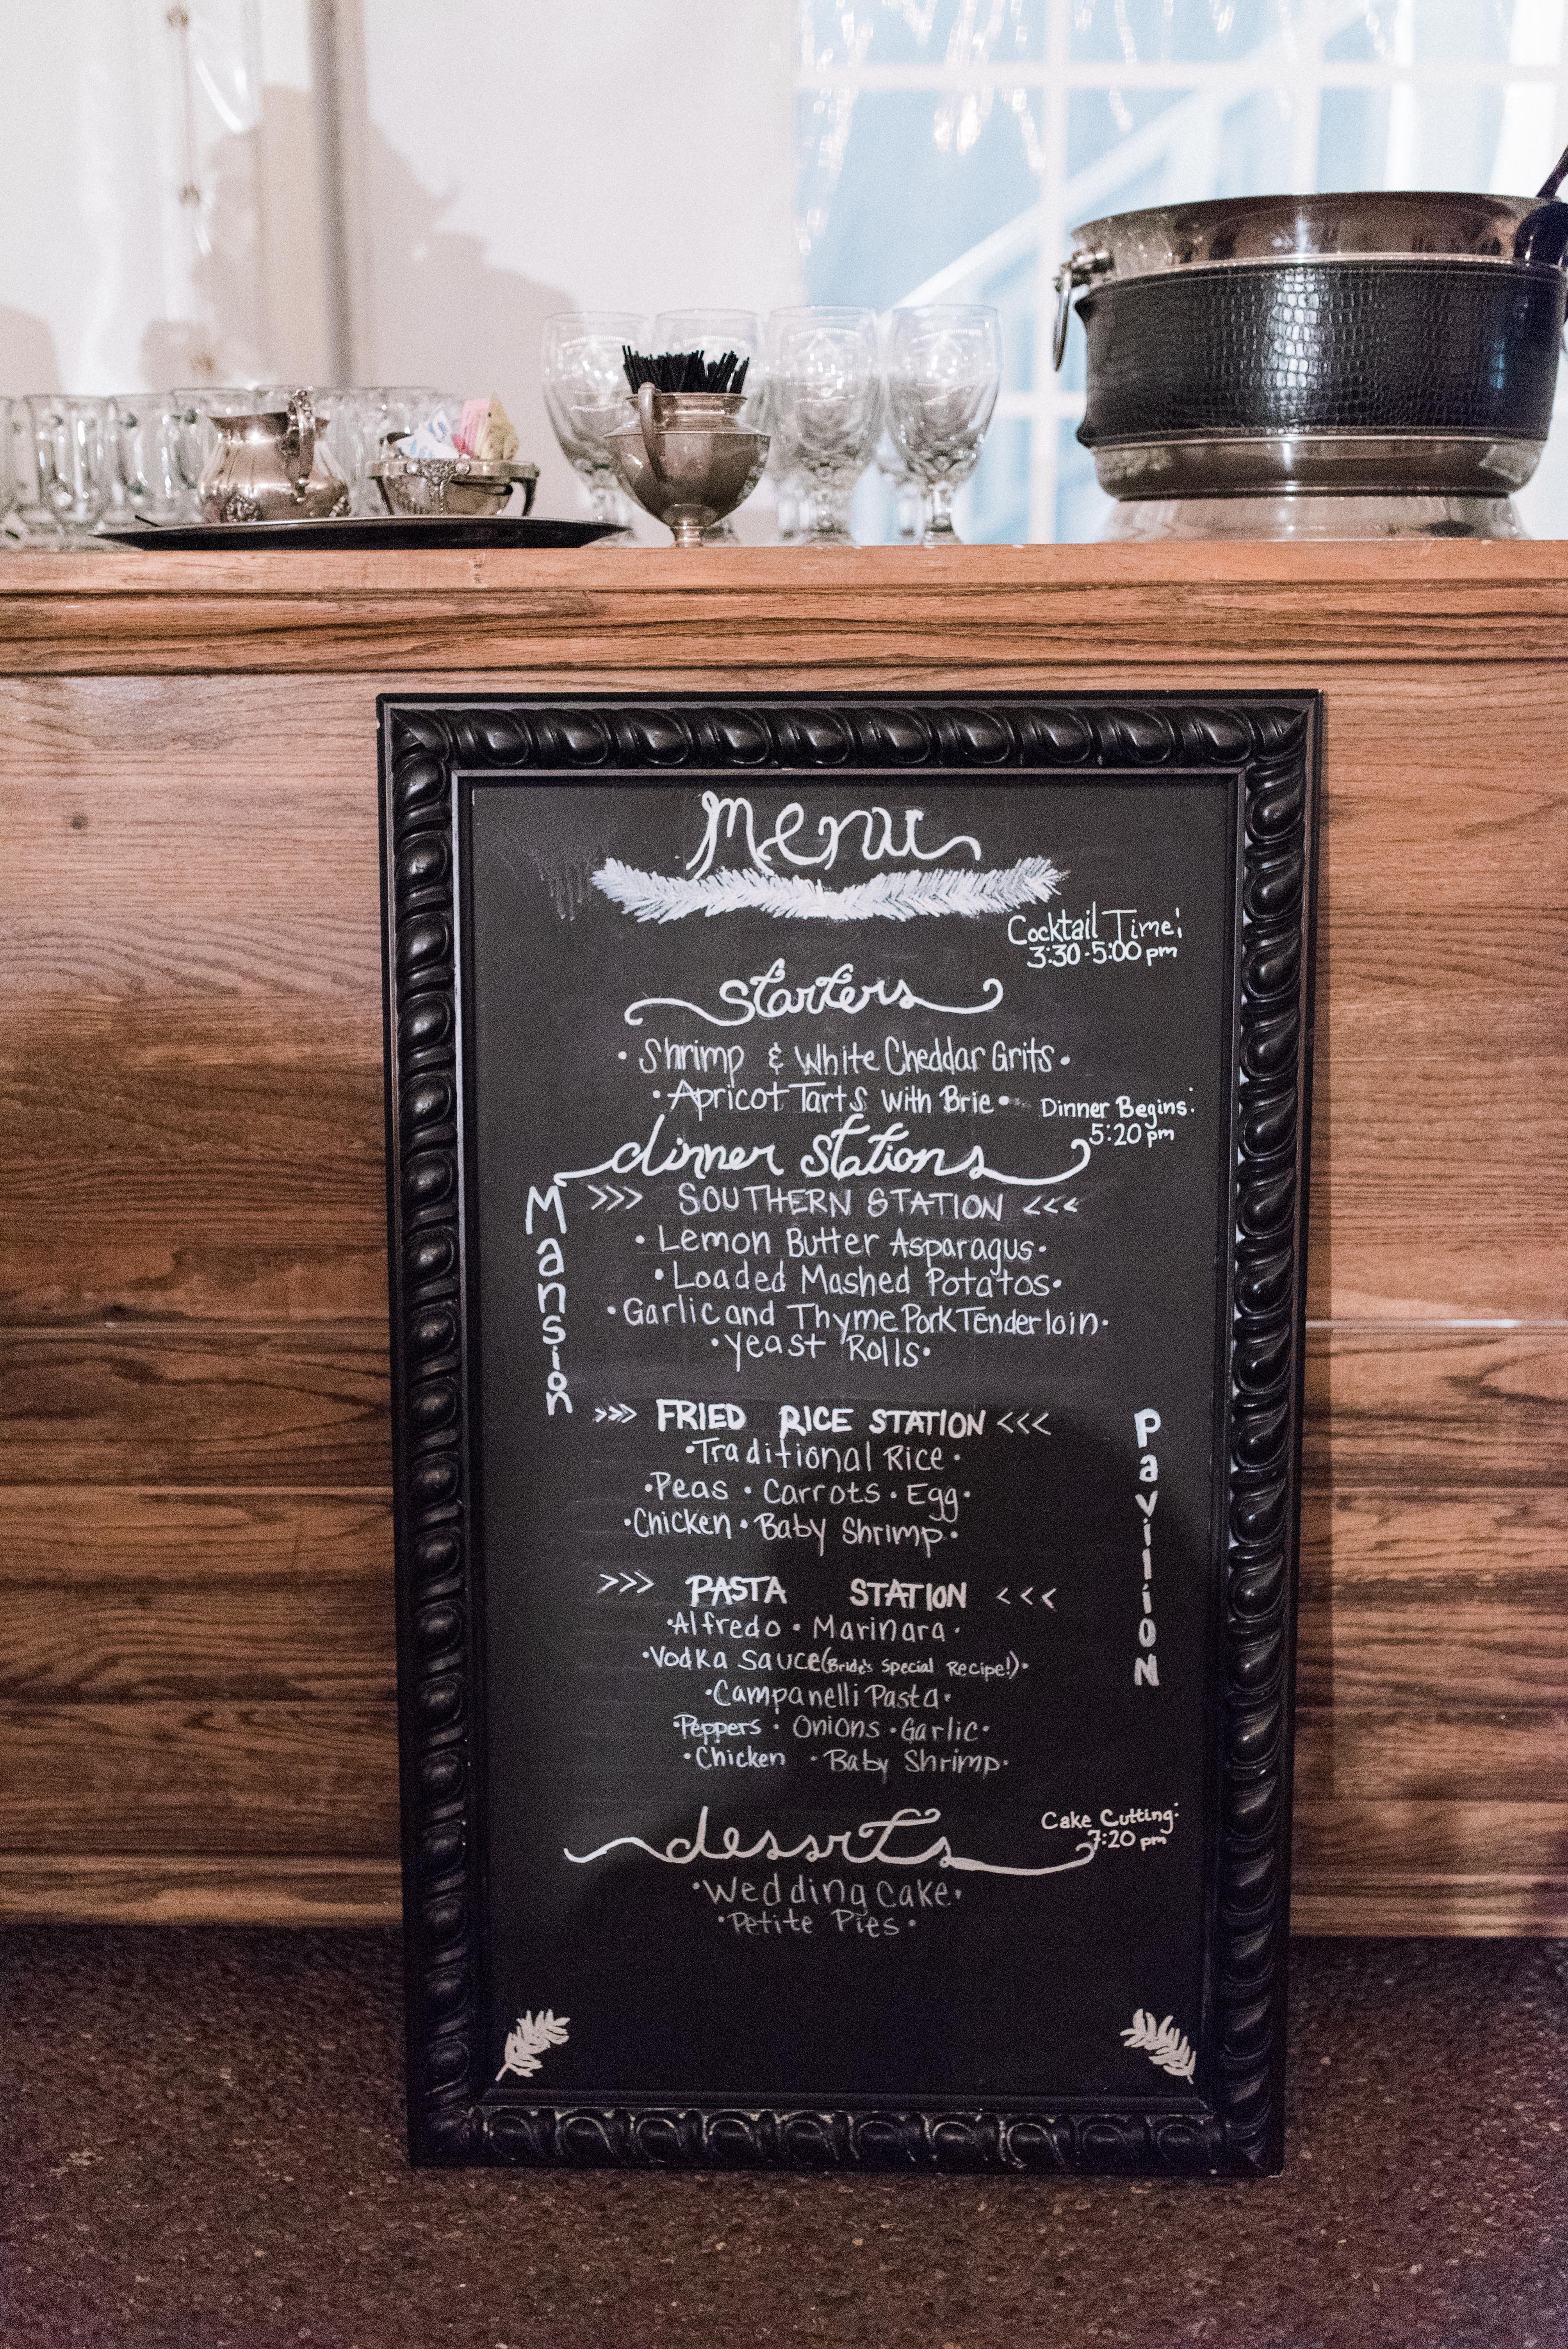 Menu
Cocktail Time:
3:30-5:00 pm
starters
• Shrimp & White Cheddar Grits •
• Apricot Tarts with Brie •
Dinner Begins:
5:20 pm
dinner stations
Mansion
>>> SOUTHERN STATION <<<
• Lemon Butter Asparagus •
• Loaded Mashed Potatos •
• Garlic and Thyme Pork Tenderloin •
• Yeast Rolls •
>>> FRIED RICE STATION <<<
• Traditional Rice •
• Peas • Carrots • Egg •
• Chicken • Baby Shrimp •
Pavilion
>>> PASTA STATION <<<
• Alfredo • Marinara •
• Vodka Sauce (Bride's Special Recipe!) •
• Campanelli Pasta •
• Peppers • Onions • Garlic •
• Chicken • Baby Shrimp •
Cake Cutting:
7:20 pm
desserts
• Wedding Cake •
• Petite Pies •